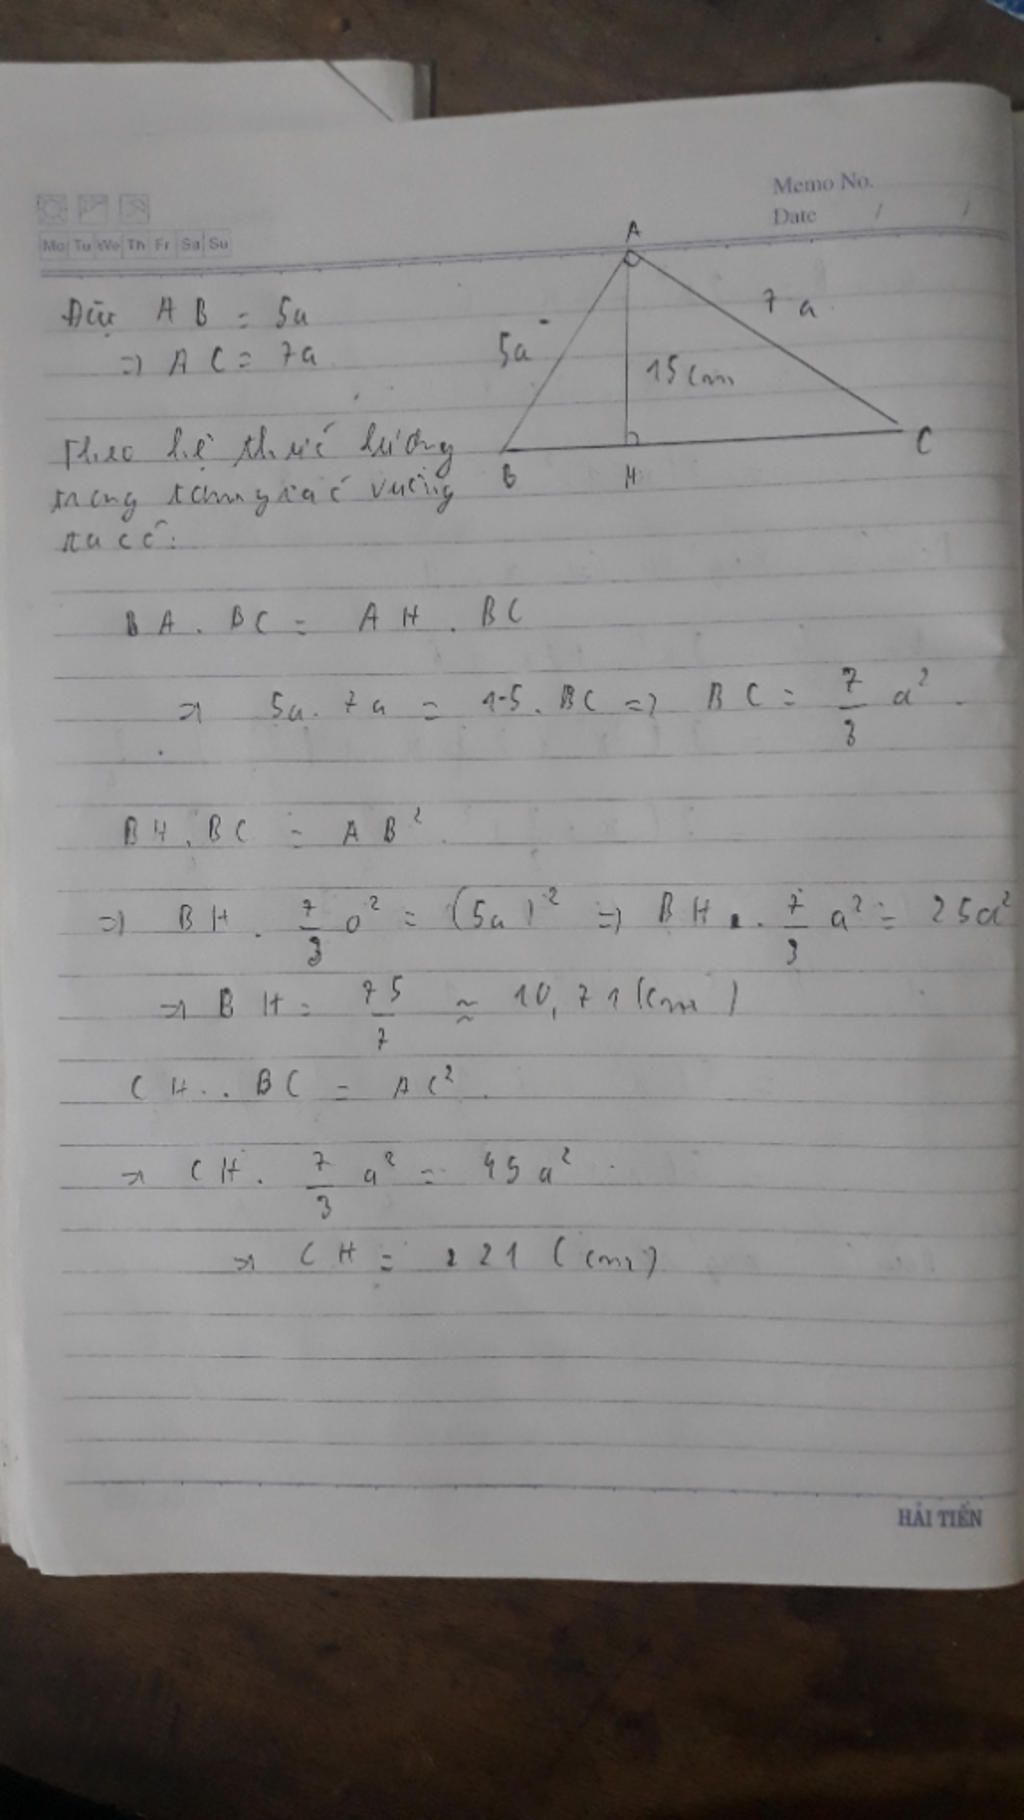 Memo No.
Date / /
Mo Tu We Th Fr Sa Su
A
Đặt AB = 5a
=> AC = 7a
5a
7a
15cm
B
H
C
Theo hệ thức lượng
trong tam giác vuông
ta có:
BA . BC = AH . BC
=> 5a . 7a = 15 . BC => BC = 7/3 a²
BH . BC = AB²
=> BH . 7/3 a² = (5a)² => BH . 7/3 a² = 25a²
=> BH = 75/7 ≈ 10,71 (cm)
CH . BC = AC²
=> CH . 7/3 a² = 45a²
=> CH = 21 (cm)
HẢI TIẾN